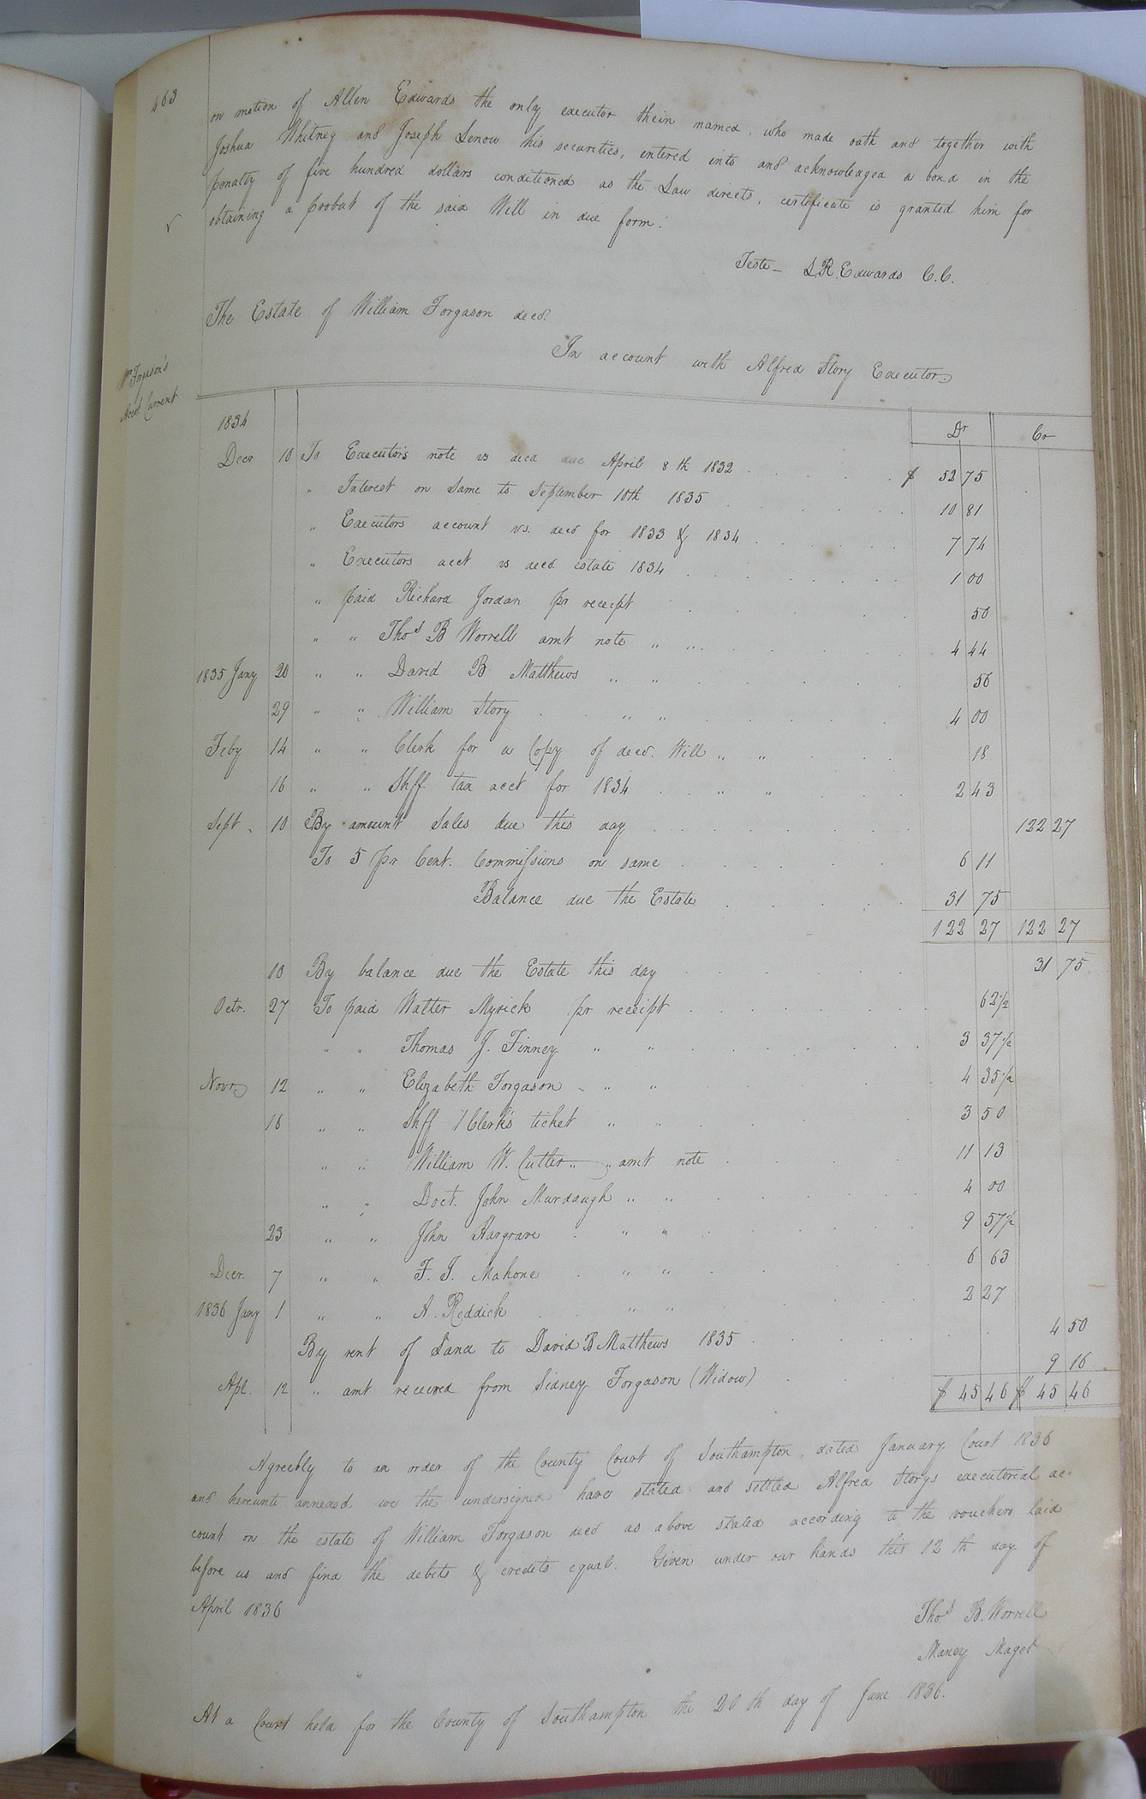 463
on motion of Allen Edwards the only executor thein named, who made oath and together with
Joshua Whitney and Joseph Lenow his securities, entered into and acknowledged a bond in the
penalty of five hundred dollars conditioned as the Law directs, certificate is granted him for
obtaining a probat of the said Will in due form.
Teste - L.R. Edwards C.C.
The Estate of William Forgason decd.
In account with Alfred Story Executor
Wm Forgason's
Acct Current
1834 Dr Cr
Decr 10 To Executors note vs decd due April 8th 1832 $ 52 75
" Interest on Same to September 10th 1835 10 81
" Executors account vs. decd for 1833 & 1834 7 74
" Executors acct vs decd estate 1834 1 00
" paid Richard Jordan pr receipt 50
" " Thos B Worrell amt note " " 4 44
1835 Jany 20 " " David B Matthews " " 56
29 " " William Story " " 4 00
Feby 14 " " Clerk for a Copy of decd. Will " " 18
16 " " Shff tax acct for 1834 " " 2 43
Sept. 10 By amount Sales due this day 122 27
To 5 pr Cent. Commissions on same 6 11
Balance due the Estate 31 75
122 27 122 27
10 By balance due the Estate this day 31 75
Octr. 27 To paid Walter Myrick pr receipt 62½
" " Thomas J. Finney " " 3 37½
Novr 12 " " Elizabeth Forgason " " 4 35½
16 " " Shff / Clerk's ticket " " 3 50
" " William W. Cutler " " amt note 11 13
" " Doct. John Murdaugh " " 4 00
23 " " John Hargrave " " 9 57½
Decr. 7 " " F. J. Mahone " " 6 63
1836 Jany 1 " " A. Reddick " " 2 27
By rent of Land to David B Matthews 1835 4 50
Apl. 12 " amt received from Sidney Forgason (Widow) 9 16
$ 45 46 $ 45 46
Agreebly to an order of the County Court of Southampton, dated January Court 1836
and hereunto annexed we the undersigned have stated and settled Alfred Storys executorial ac-
count on the estate of William Forgason decd as above stated according to the vouchers laid
before us and find the debets & credets equal. Given under our hands this 12th day of
April 1836
Thos B. Worrell
Maney Maget
At a Court held for the County of Southampton the 20th day of June 1836.